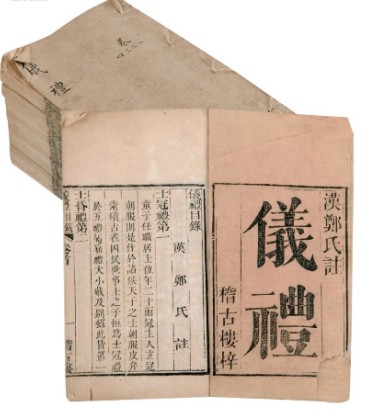 儀禮
漢鄭氏註
儀禮
稽古樓梓
儀禮目錄
漢 鄭氏註
士冠禮第一
童子任職居士位年二十而冠主人玄冠
朝服則是仕於諸侯天子之士朝服皮弁
素積古者四民世事士之子恒為士冠禮
於五禮屬嘉禮大小戴及別錄此皆第一
士昏禮第二
儀禮目錄